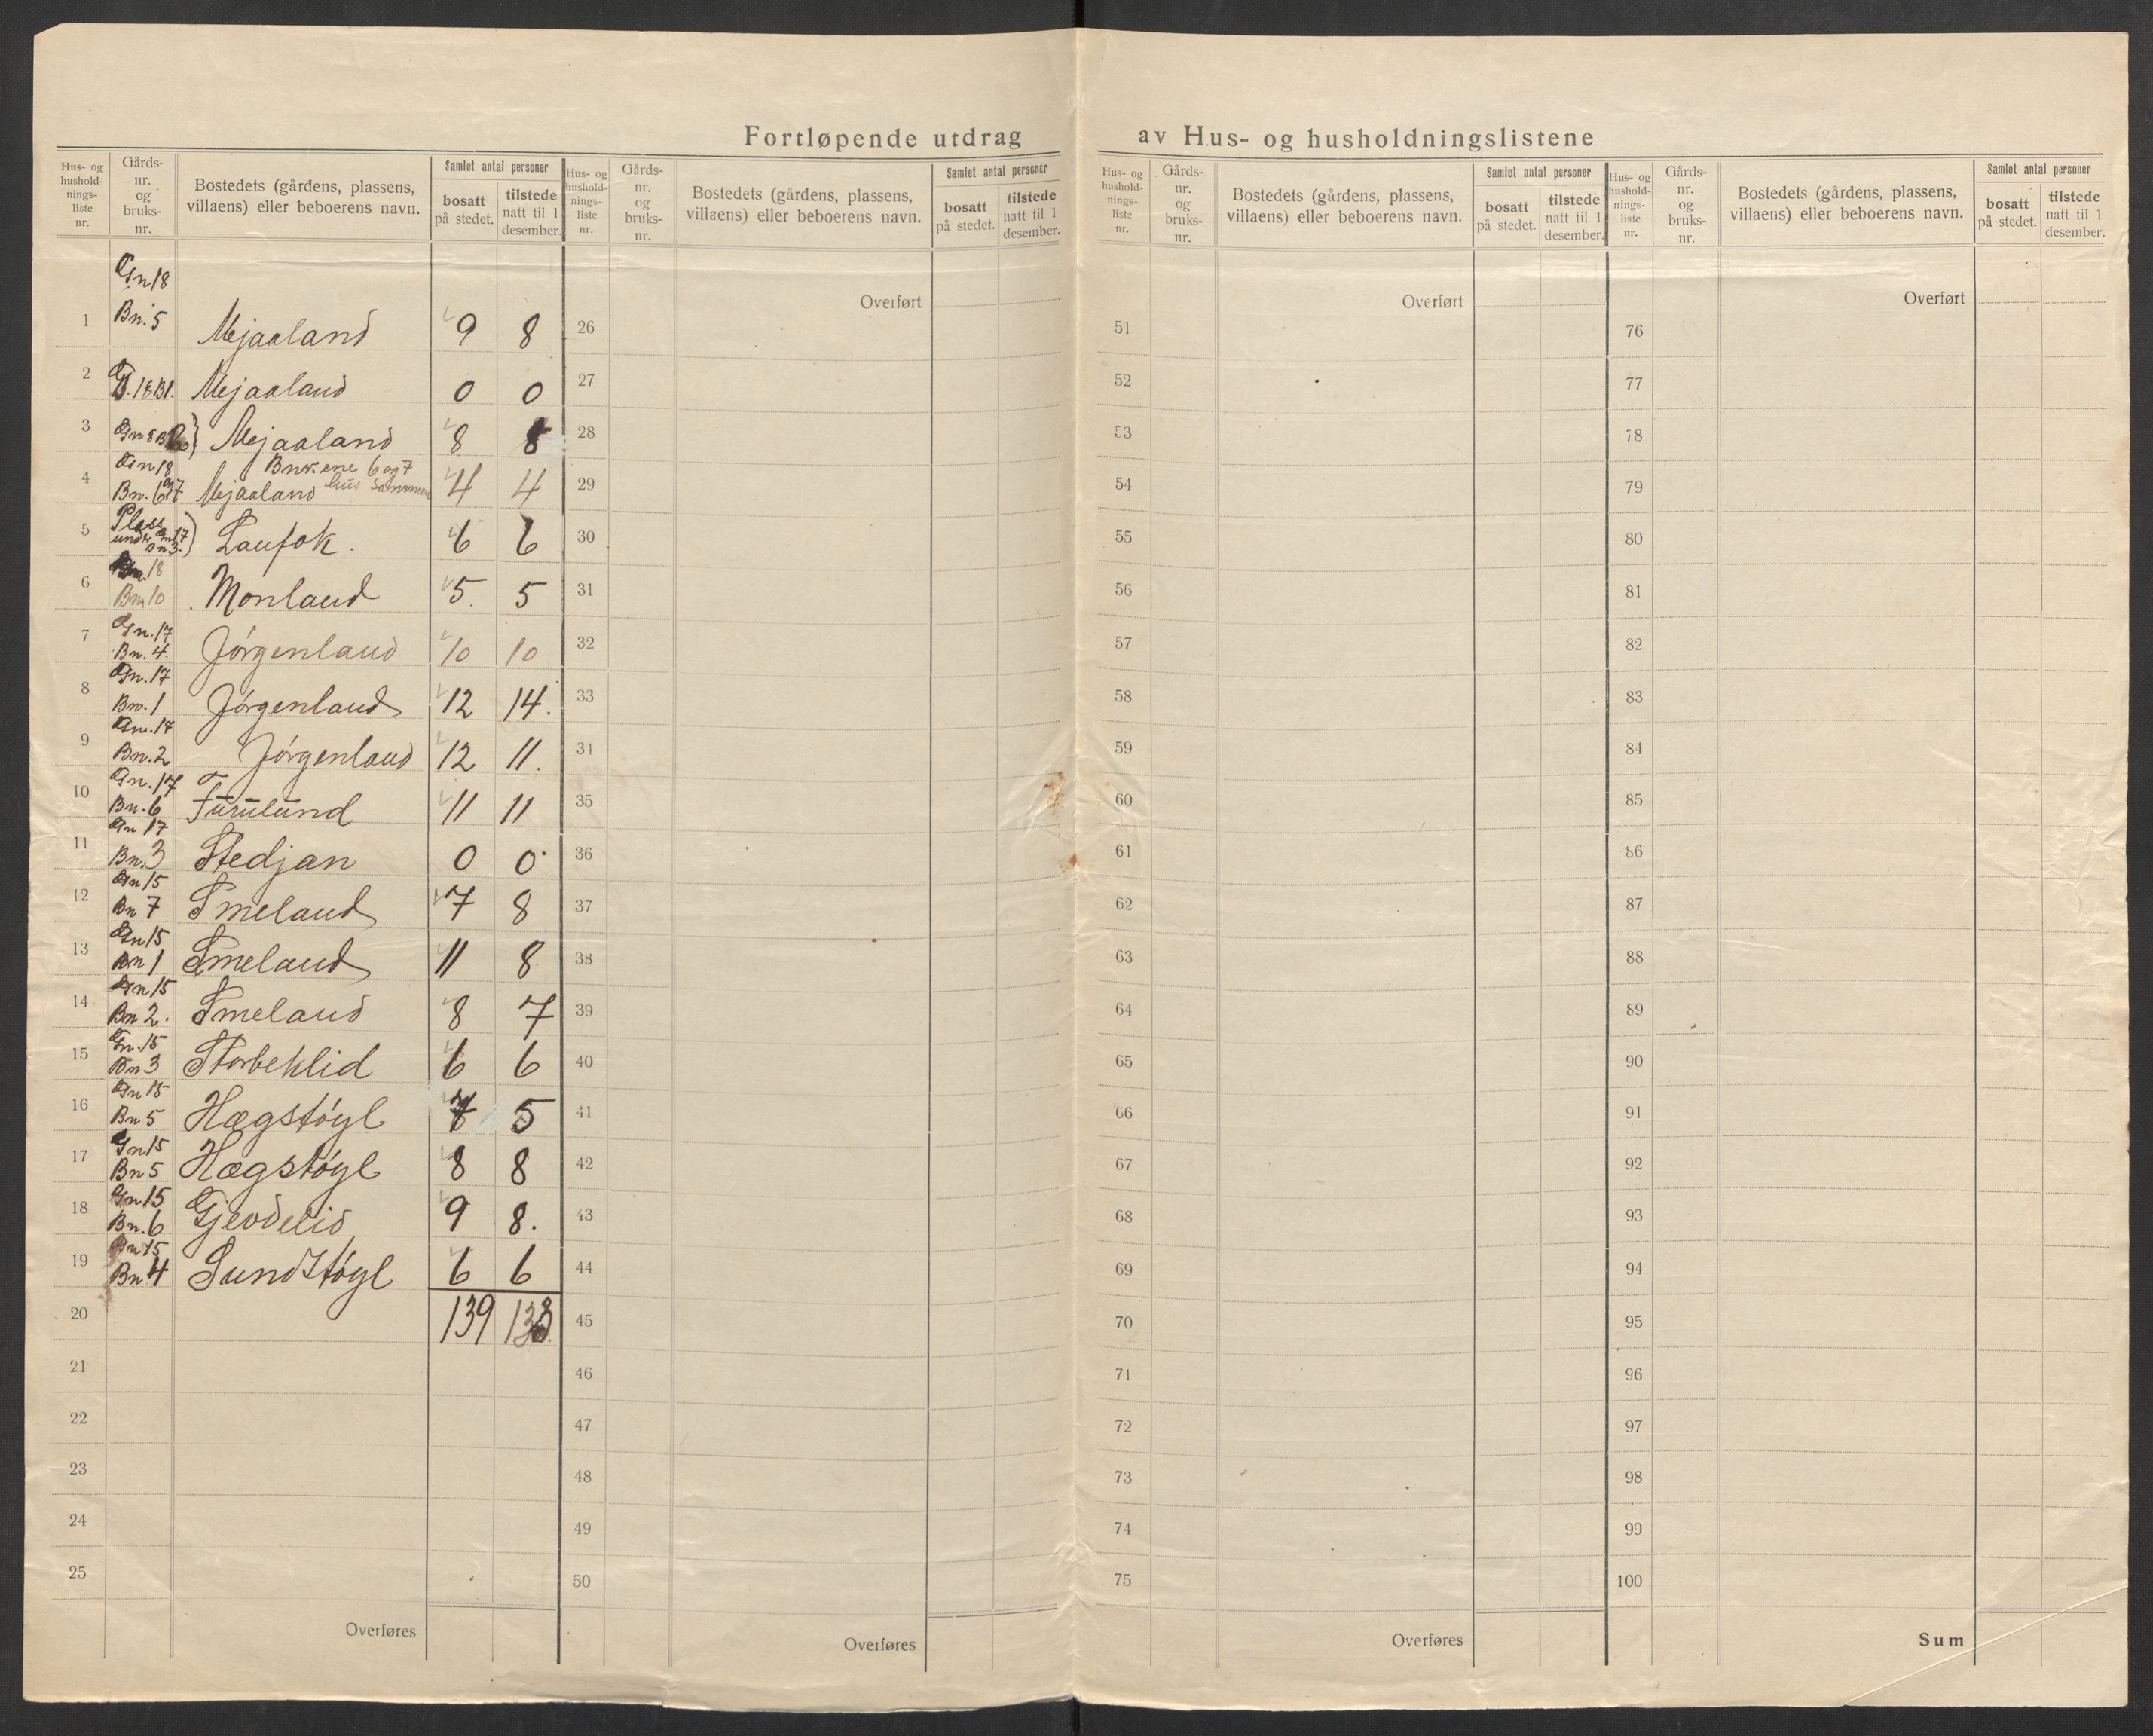 Fortløpende utdrag av Hus- og husholdningslistene
Hus- og hushold-nings-liste nr. Gårds-nr. og bruks-nr. Bostedets (gårdens, plassens, villaens) eller beboerens navn. Samlet antal personer bosatt på stedet. tilstede natt til 1 desember.
Hus- og hushold-nings-liste nr. Gårds-nr. og bruks-nr. Bostedets (gårdens, plassens, villaens) eller beboerens navn. Samlet antal personer bosatt på stedet. tilstede natt til 1 desember.
Hus- og hushold-nings-liste nr. Gårds-nr. og bruks-nr. Bostedets (gårdens, plassens, villaens) eller beboerens navn. Samlet antal personer bosatt på stedet. tilstede natt til 1 desember.
Hus- og hushold-nings-liste nr. Gårds-nr. og bruks-nr. Bostedets (gårdens, plassens, villaens) eller beboerens navn. Samlet antal personer bosatt på stedet. tilstede natt til 1 desember.
Gn 18
1 Bn. 5 Mjaaland 9 8
2 18 B1. Mjaaland 0 0
3 Gn 8 Mjaaland 8 8
Gn 18 Bnr. ene 6 og 7
4 Bn. 6 og 7 Mjaaland hus sammen 4 4
Plass
5 under Gn 17 Bn 3. Laufok. 6 6
18
6 Bn 10 Monland 5 5
Gn. 17
7 Bn. 4. Jørgenland 10 10
Gn. 17
8 Bn. 1 Jørgenland 12 14.
Gn. 17
9 Bn. 2 Jørgenland 12 11.
Gn. 17
10 Bn. 6 Furulund 11 11
Gn 17
11 Bn. 3 Stedjan 0 0
Gn 15
12 Bn 7 Smeland 7 8
Gn 15
13 Bn 1 Smeland 11 8
Gn 15
14 Bn 2. Smeland 8 7
Gn. 15
15 Bn 3 Storbeklid 6 6
Gn 15
16 Bn 5 Hægstøyl 7 5
Gn 15
17 Bn 5 Hægstøyl 8 8
Gn 15
18 Bn. 6 Gjevdelid 9 8.
Gn 15
19 Bn 4 Sundstøyl 6 6
20 139 133
21
22
23
24
25
Overføres
Overført
26
27
28
29
30
31
32
33
31
35
36
37
38
39
40
41
42
43
44
45
46
47
48
49
50
Overføres
Overført
51
52
53
54
55
56
57
58
59
60
61
62
63
64
65
66
67
68
69
70
71
72
73
74
75
Overføres
Overført
76
77
78
79
80
81
82
83
84
85
86
87
88
89
90
91
92
93
94
95
96
97
98
99
100
Sum